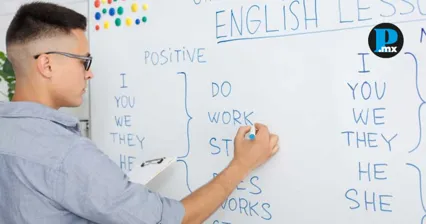 ENGLISH LESSO
P
.mx
POSITIVE
I
YOU
WE
THEY
HE
DO
WORK
WORKS
I
YOU
WE
THEY
HE
SHE